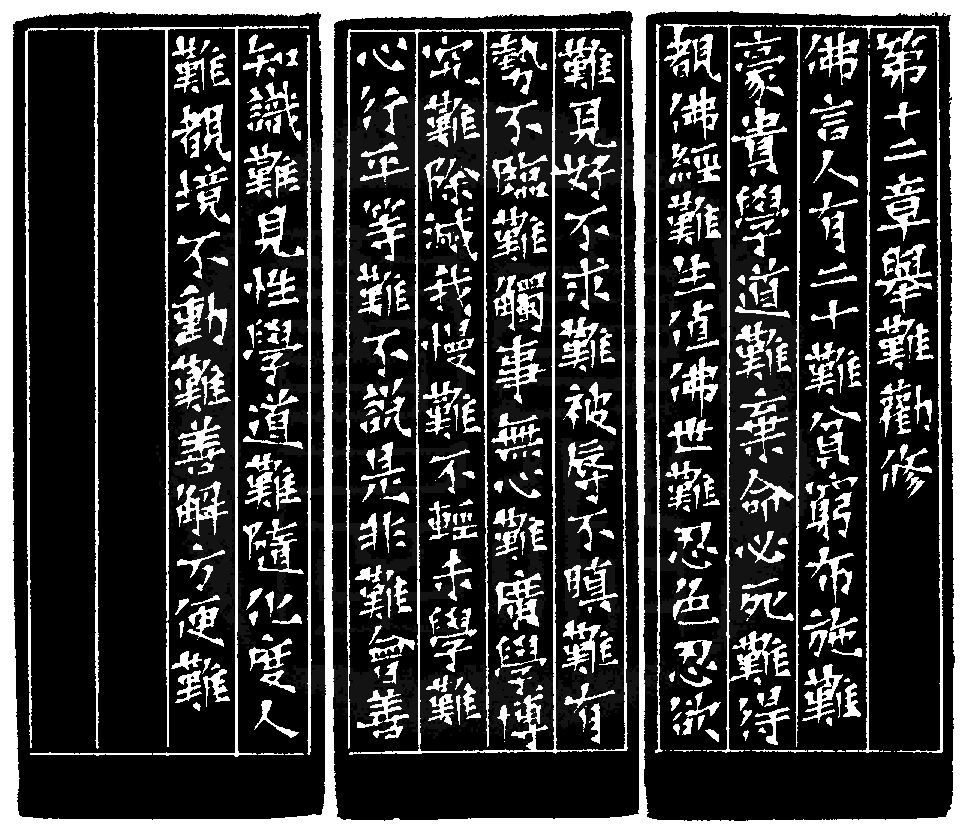 第十二章舉難勸修
佛言人有二十難貧窮布施難
豪貴學道難棄命必死難得
覩佛經難生值佛世難忍色忍欲
難見好不求難被辱不瞋難有
勢不臨難觸事無心難廣學博
究難除滅我慢難不輕未學難
心行平等難不說是非難會善
知識難見性學道難隨化度人
難覩境不動難善解方便難